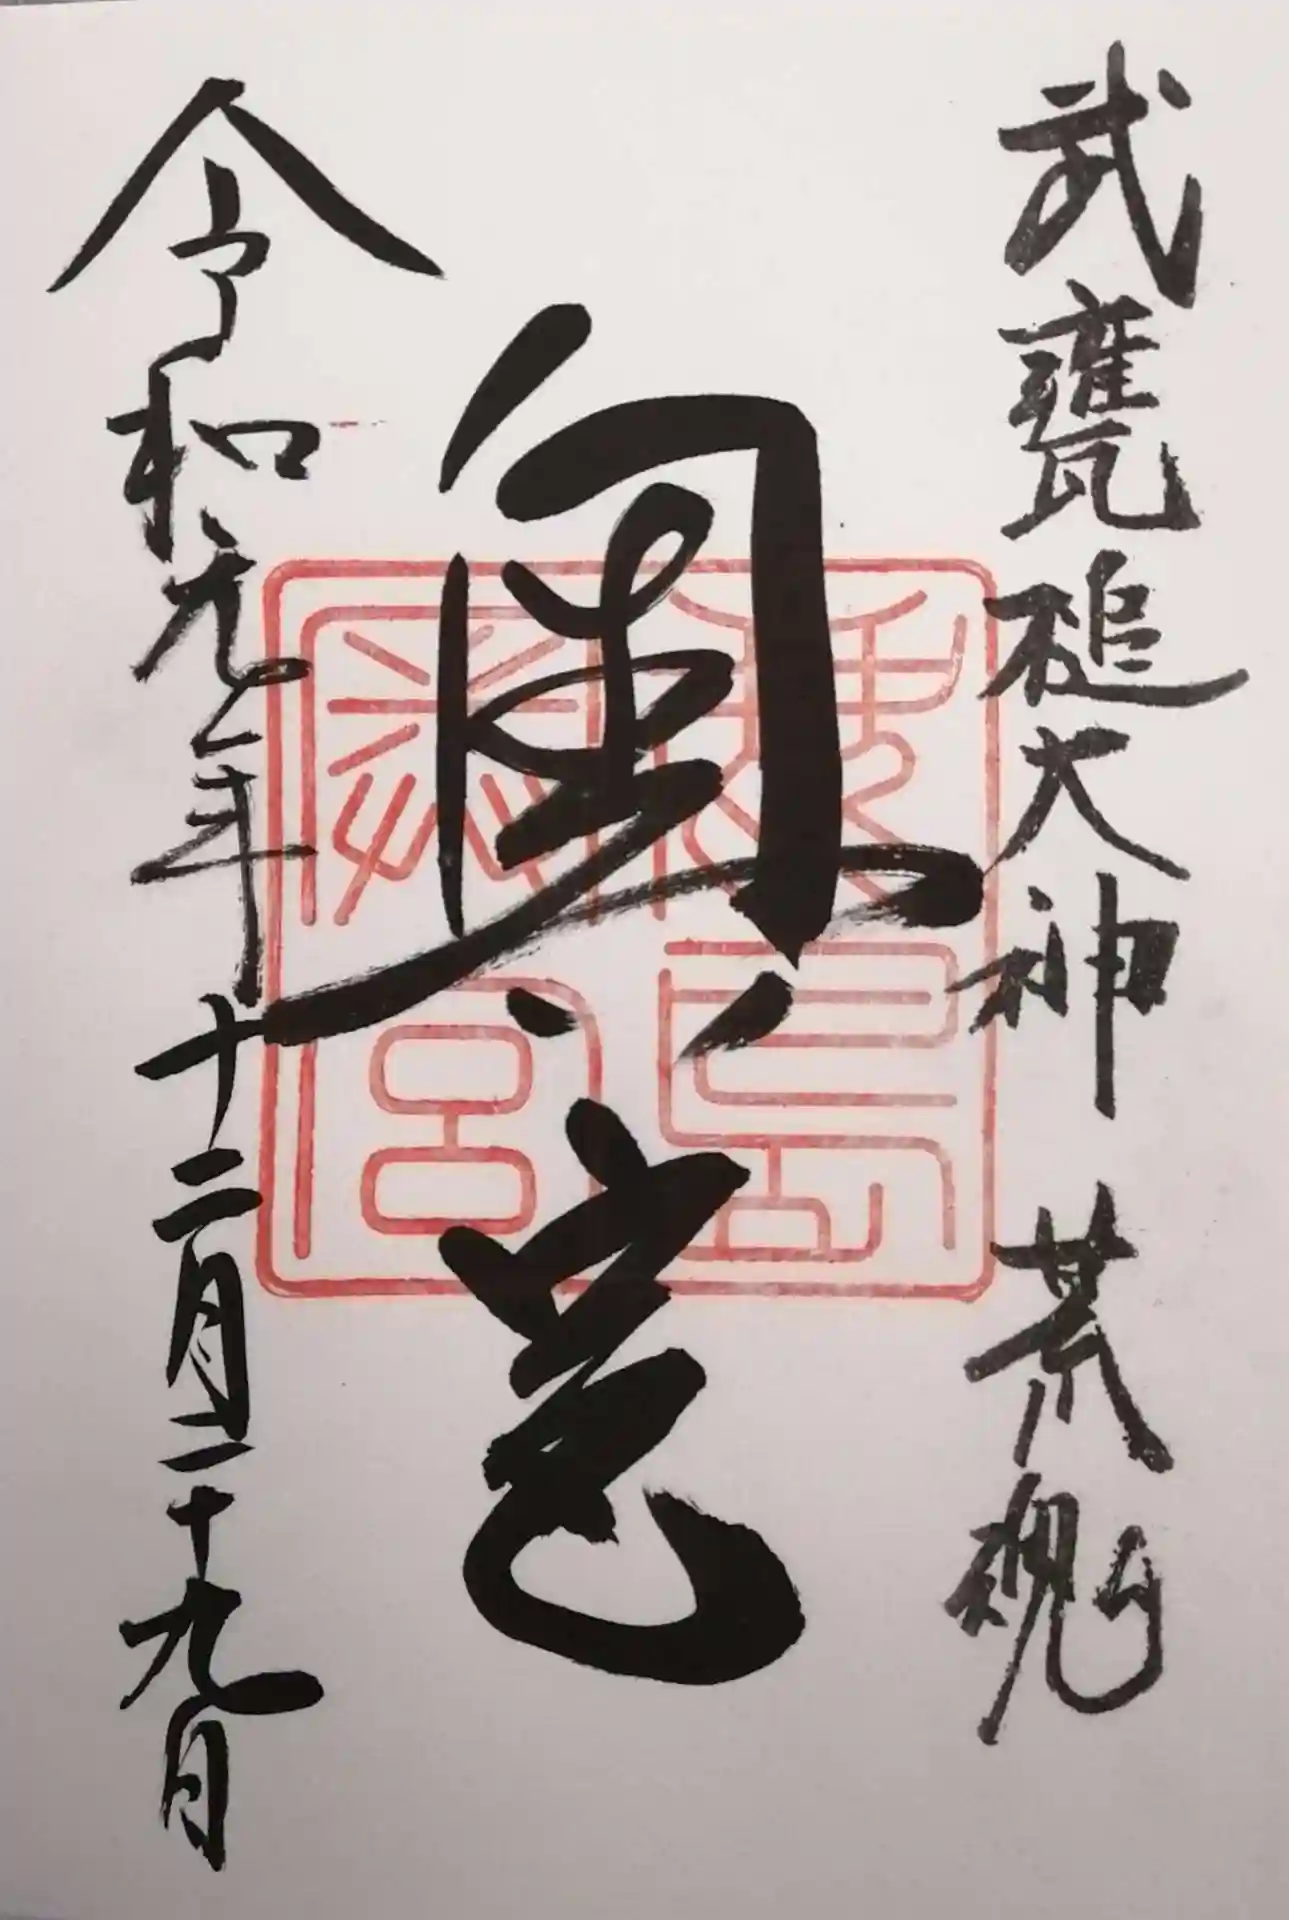 武甕槌大神 荒魂
奥宮
鹿島
神宮
令和元年十二月二十九日